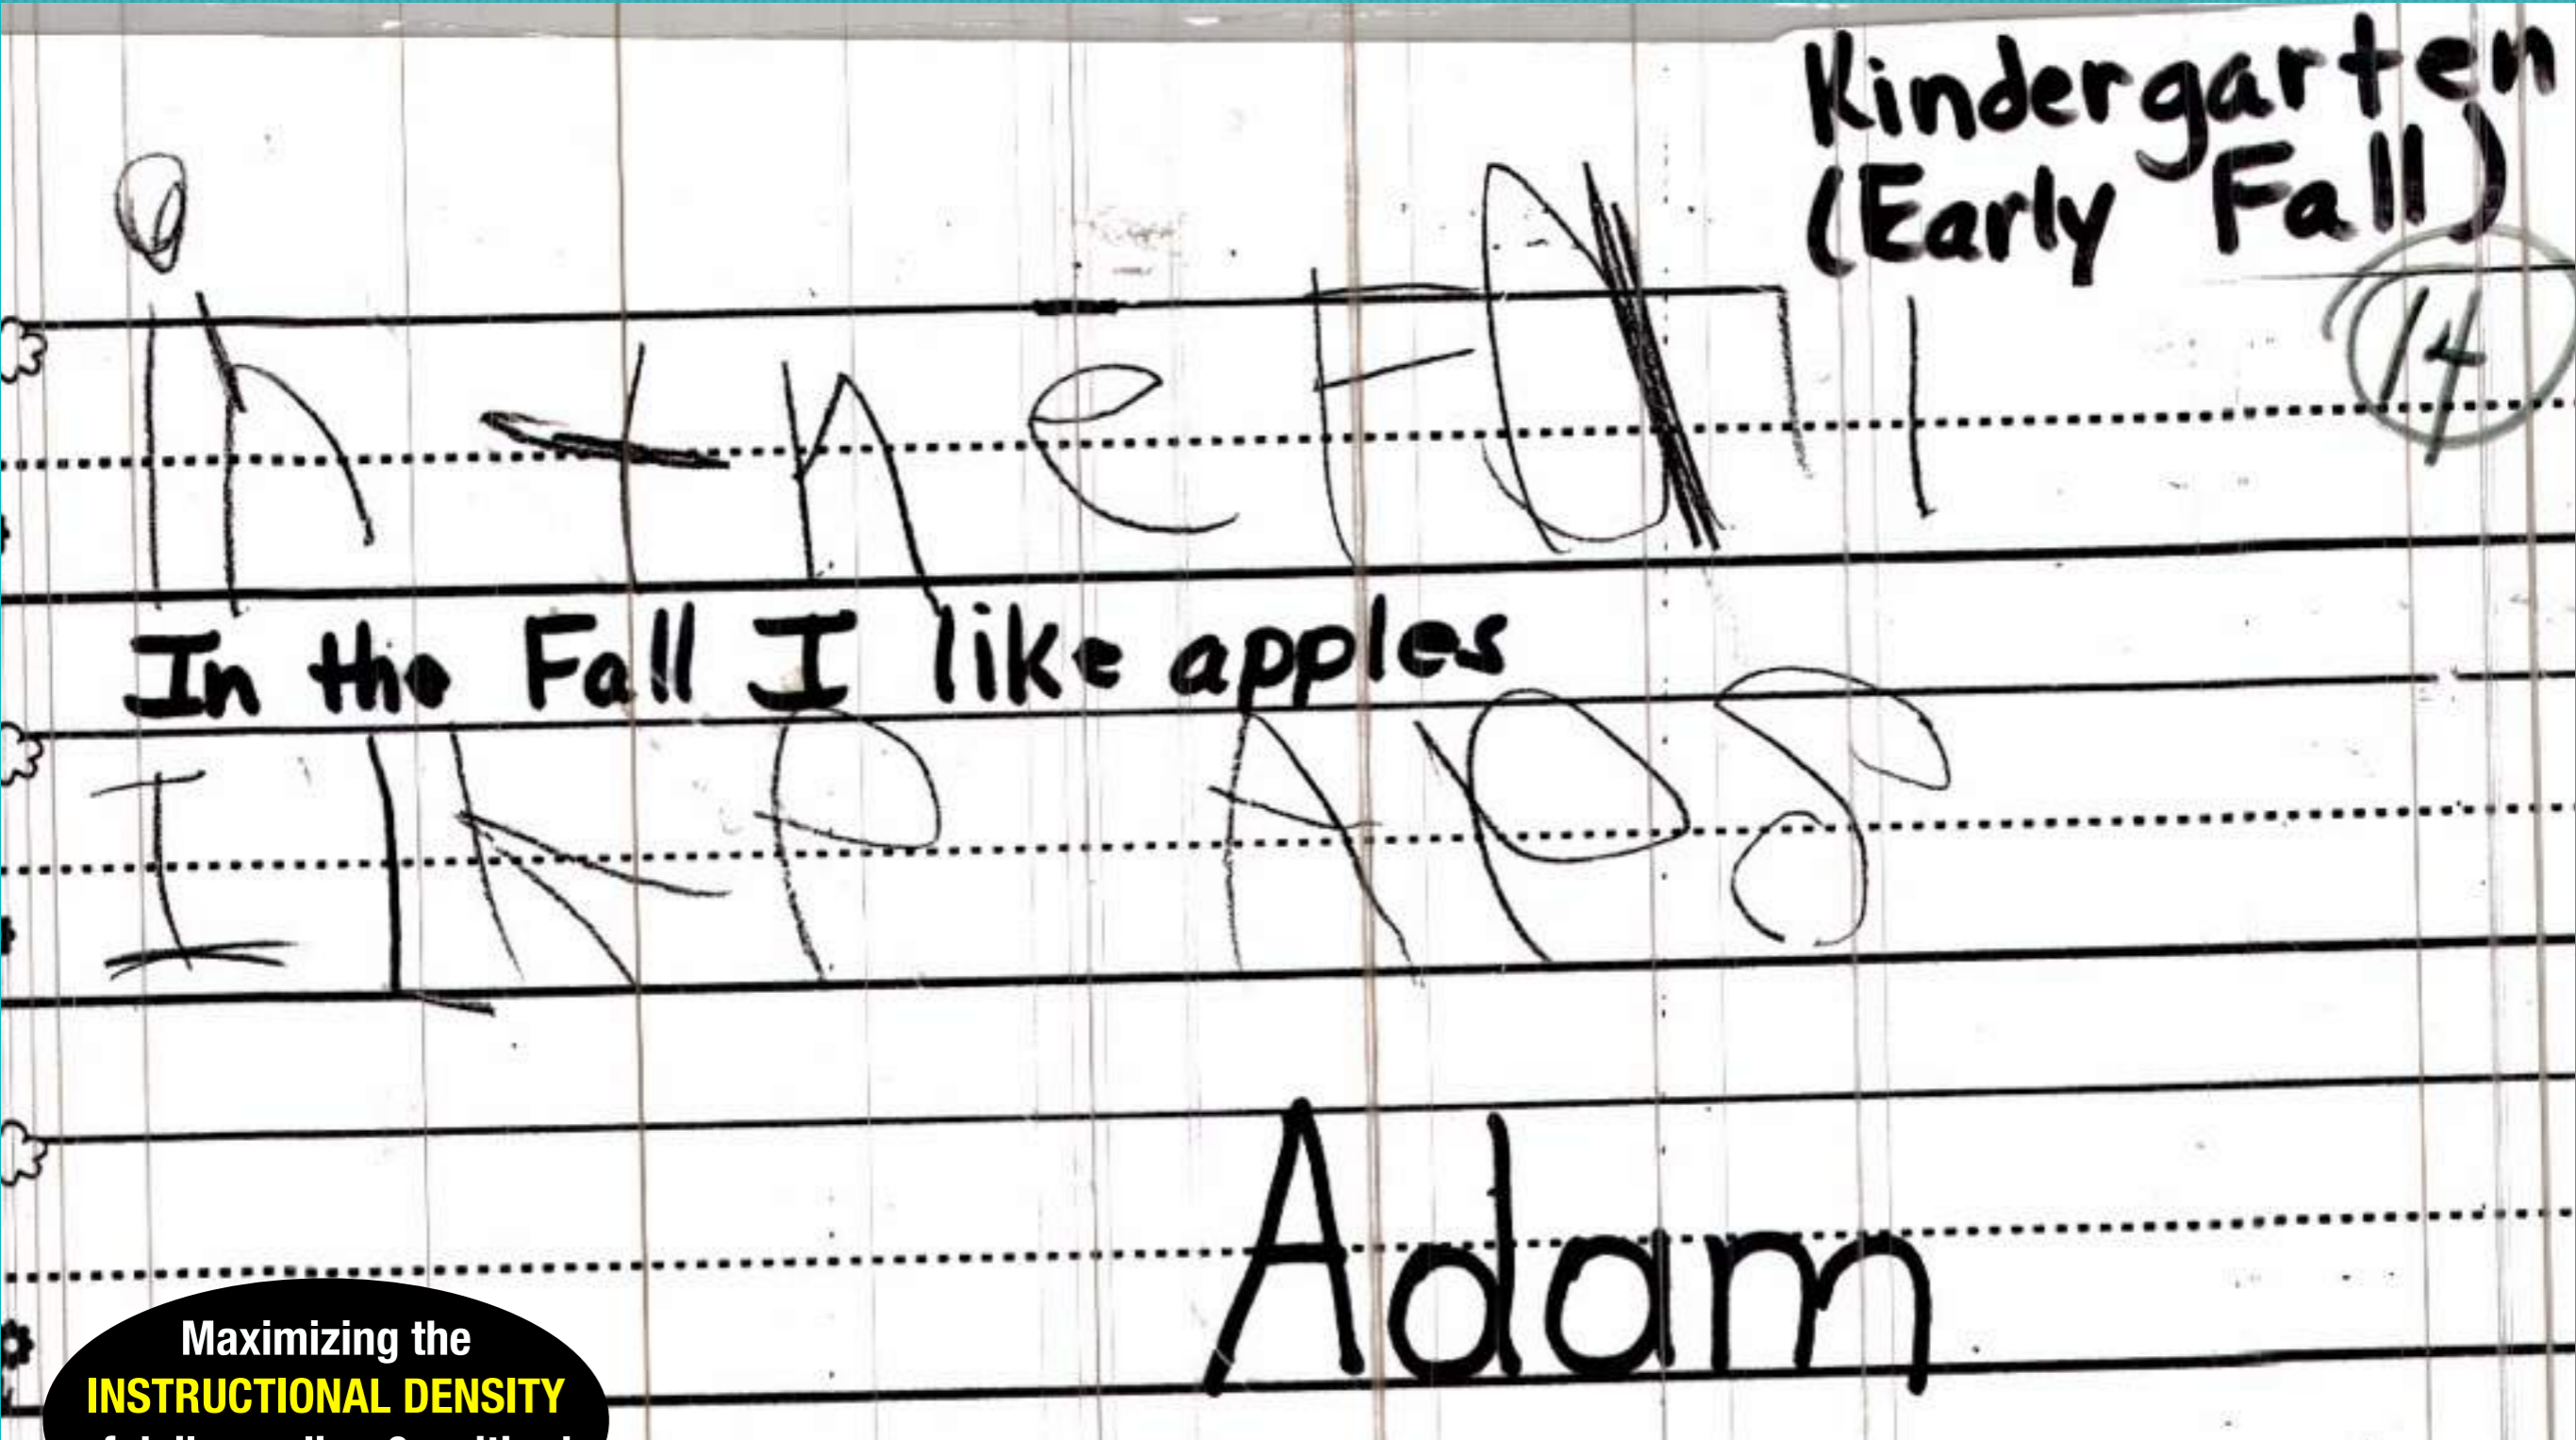 Kindergarten
(Early Fall)
14
in the Fall
In the Fall I like apples
I lk P APS
Adam
Maximizing the
INSTRUCTIONAL DENSITY